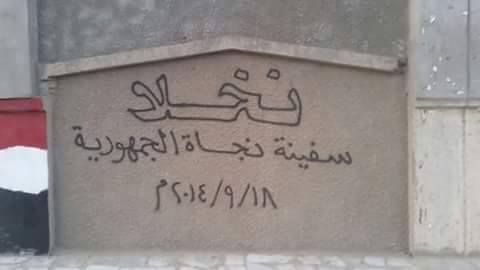 سفينة نجاة الجمهورية
٢٠١٤/٩/١٨م